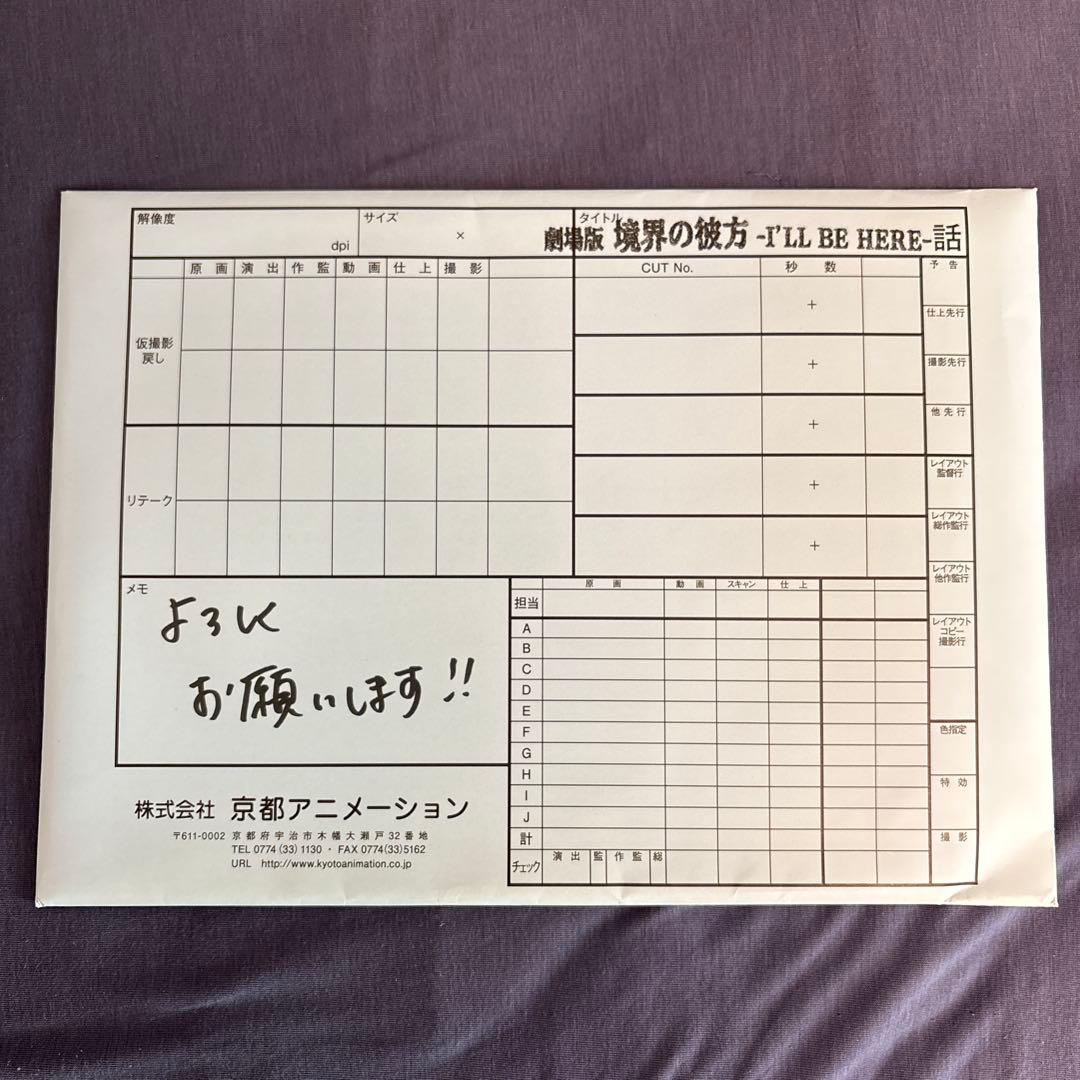 解像度 dpi サイズ × タイトル 劇場版 境界の彼方 -I'LL BE HERE- 話
原画 演出 作監 動画 仕上 撮影 CUT No. 秒数 予告
仮撮影
戻し
+
仕上先行
+
撮影先行
+
他先行
リテーク
+
レイアウト
監督行
+
レイアウト
総作監行
レイアウト
他作監行
レイアウト
コピー
撮影行
色指定
特効
撮影
メモ
よろしく
お願いします!!
原画 動画 スキャン 仕上
担当
A
B
C
D
E
F
G
H
I
J
計
チェック 演出 監 作監 総
株式会社 京都アニメーション
〒611-0002 京都府宇治市木幡大瀬戸32番地
TEL 0774(33)1130・FAX 0774(33)5162
URL http://www.kyotoanimation.co.jp